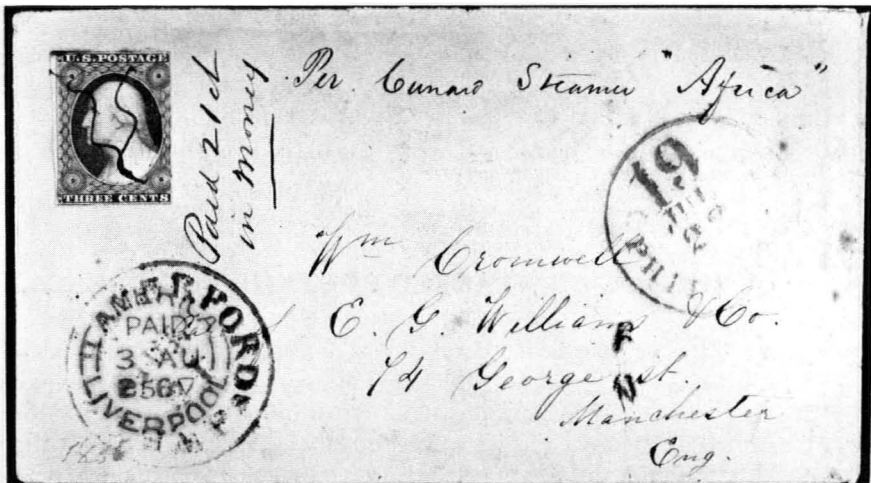 U.S. POSTAGE
THREE CENTS
Paid 21ct
in money
Per Cunard Steamer "Africa"
19
PHIL
Wm Cromwell
E. G. Williams & Co.
74 George st.
Manchester
Eng.
AMERICA
PAID
3 AU
LIVERPOOL